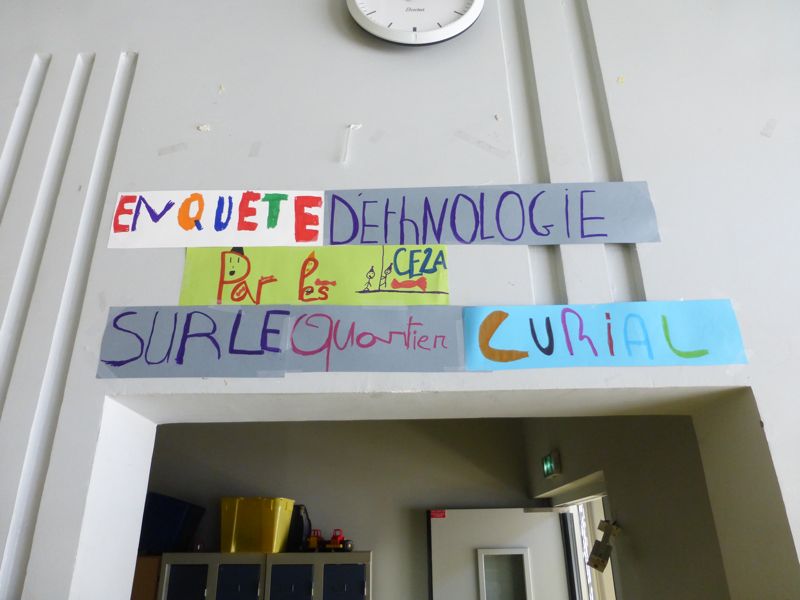 ENQUÊTE D'EthNOLOGIE
Par les CE2A
SUR LE Quartier CURIAL